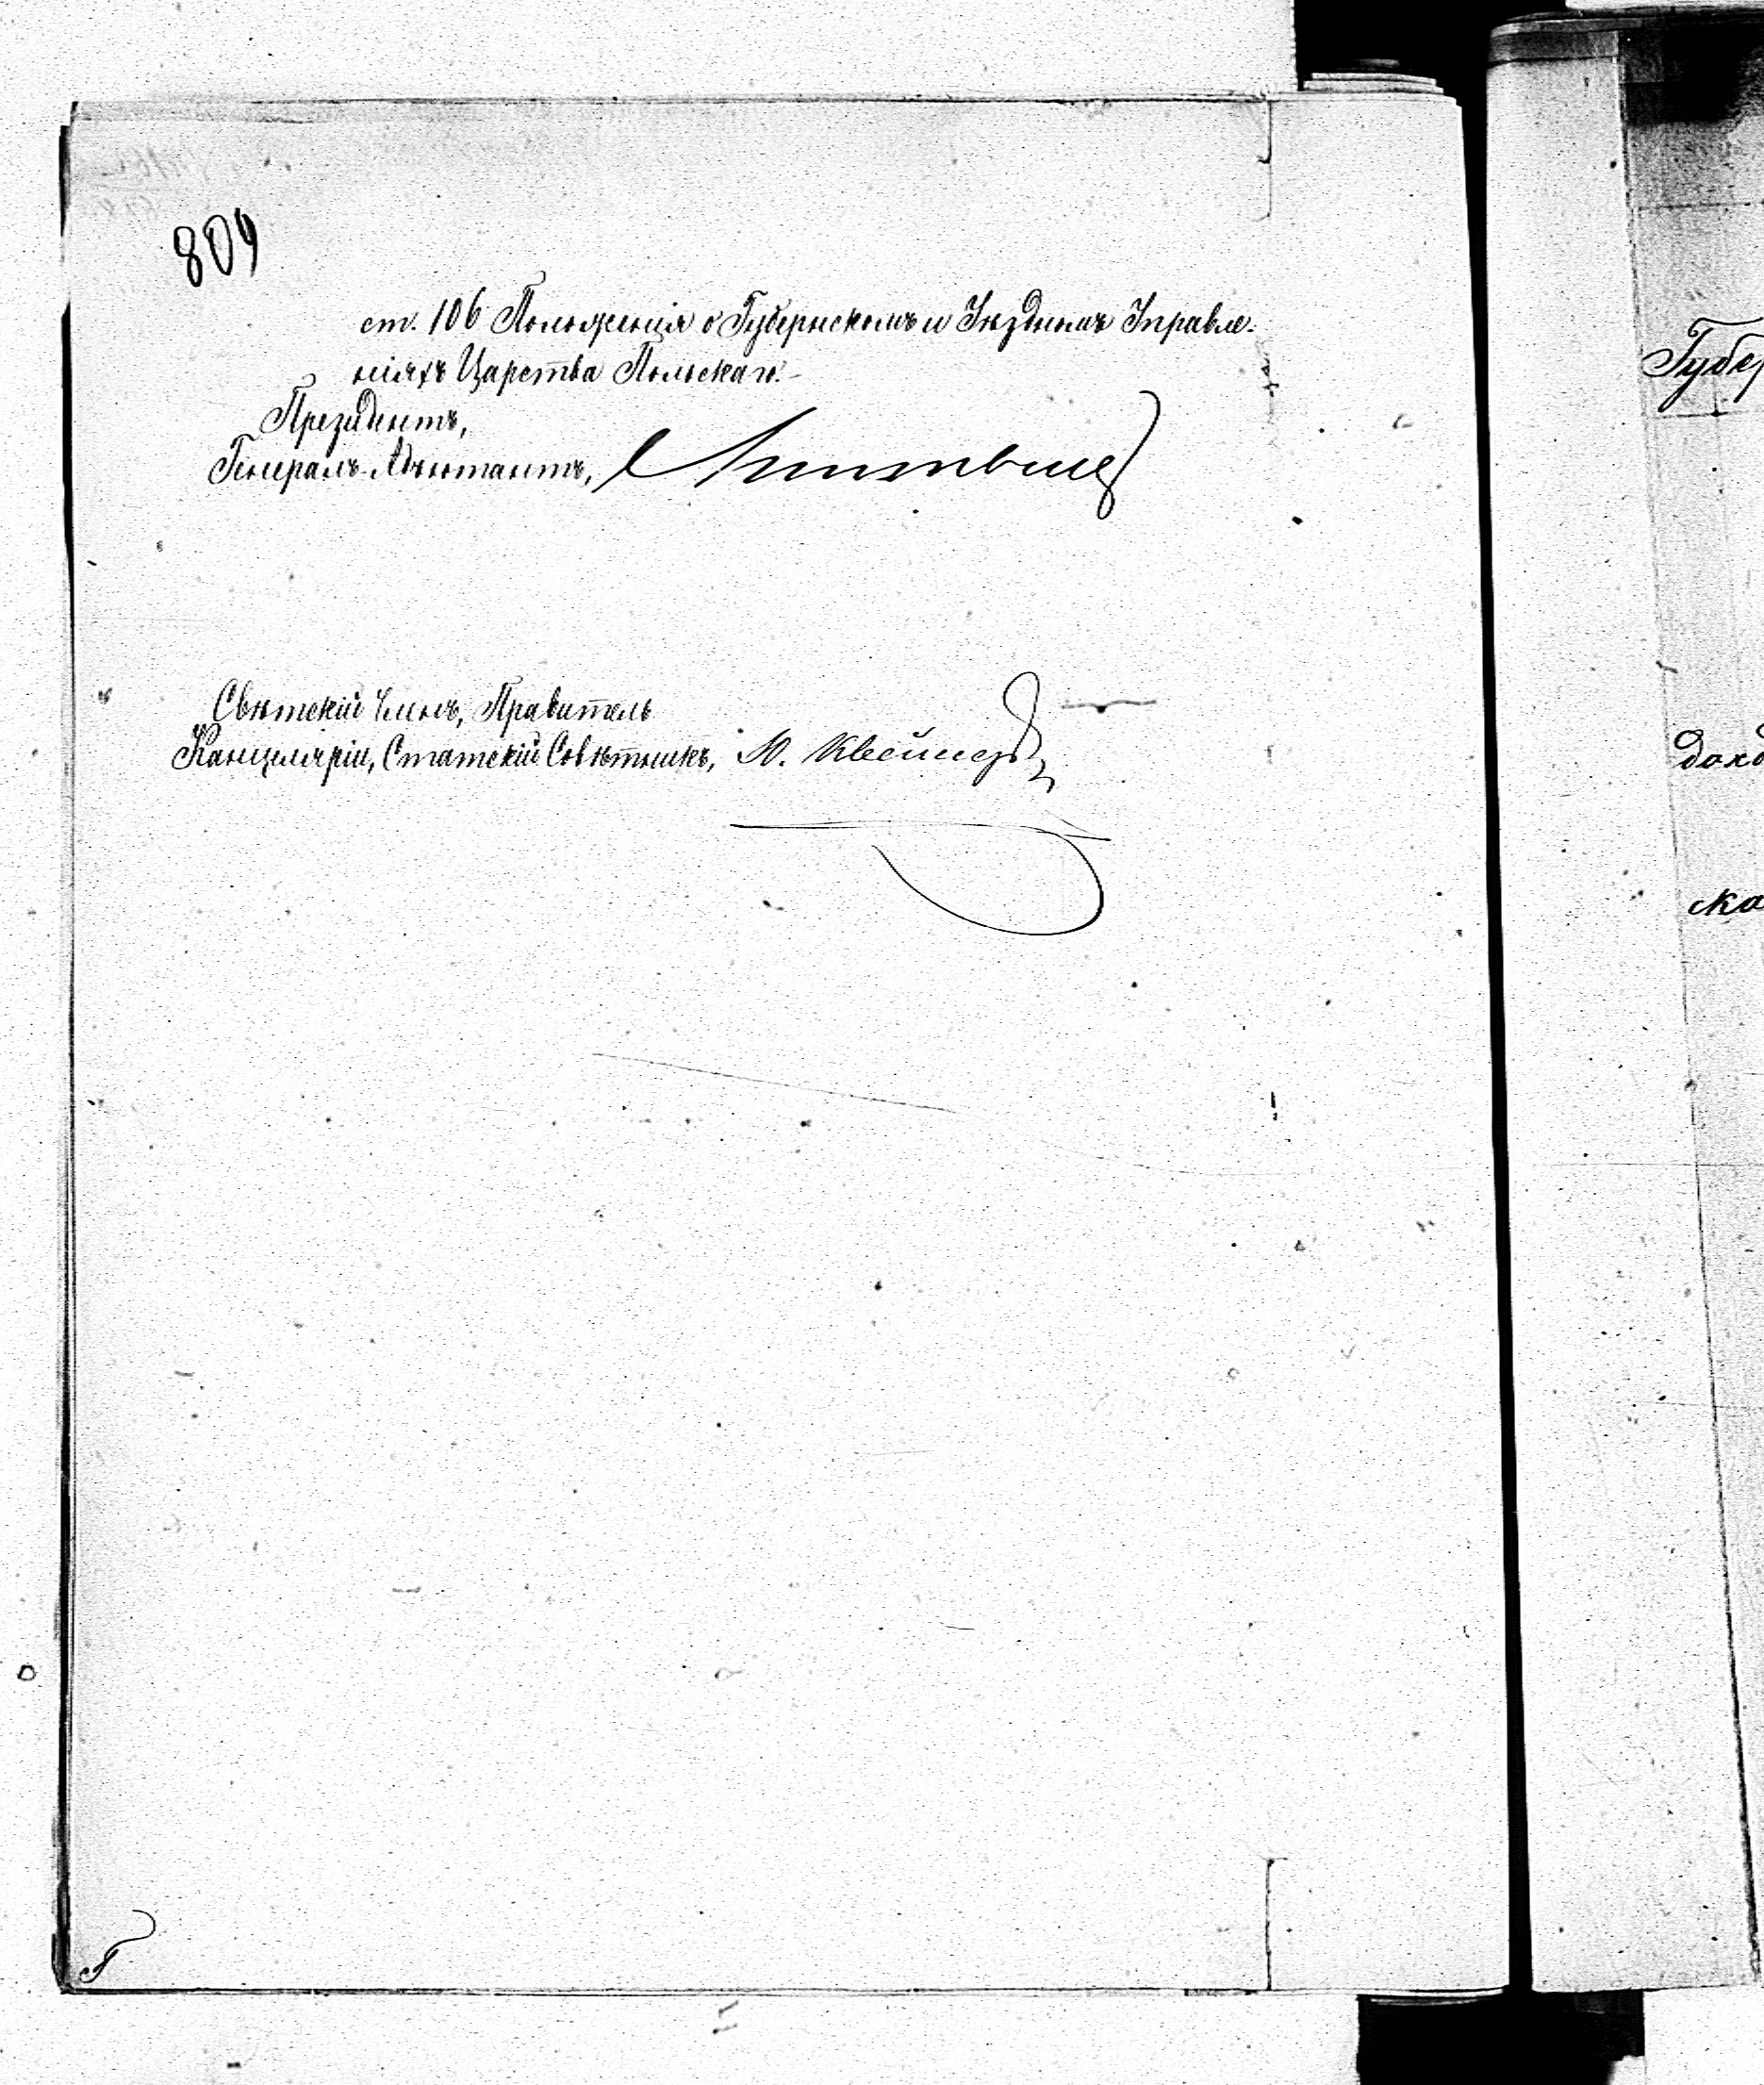 809
ст. 106 Положенія о Губернскомъ и Уѣздномъ Управле-
ніяхъ Царства Польскаго.-
Президентъ,
Генералъ-Адъютантъ,
Свѣтскій Членъ, Правитель
Канцеляріи, Статскій Совѣтникъ, М.
Губер
дохо
ска